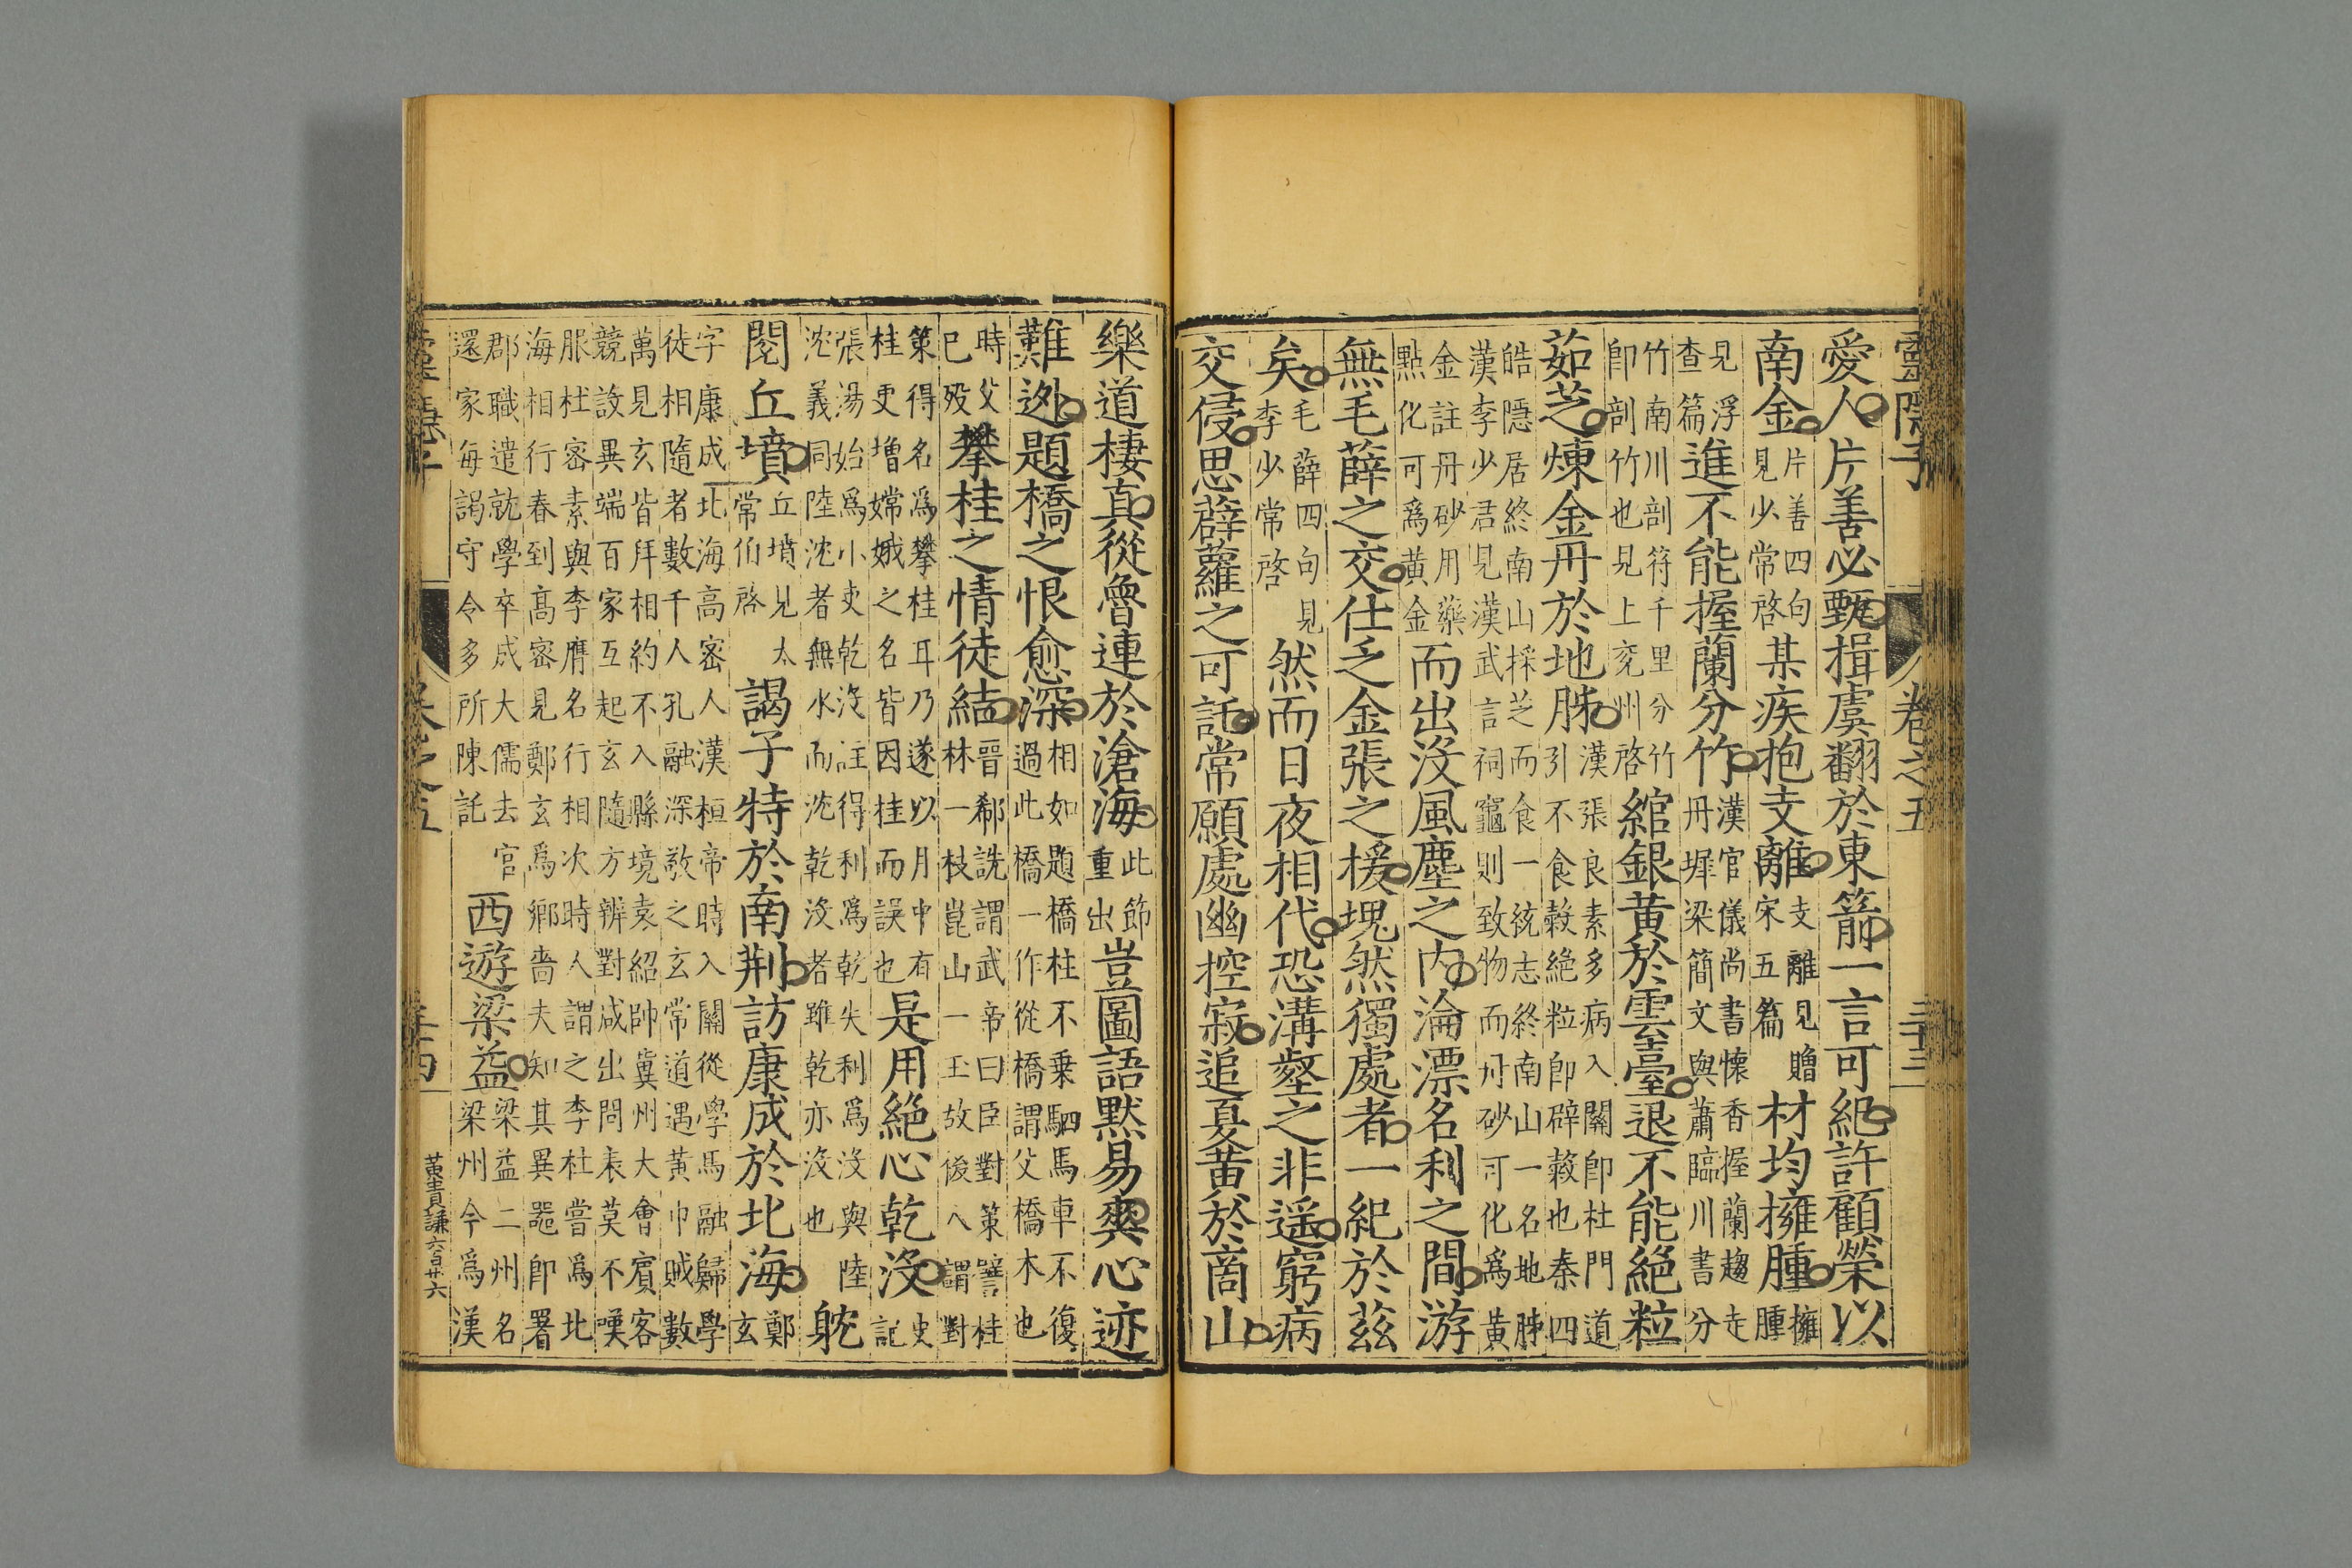 靈隱子 卷之五 三十三
愛人片善必甄揖虞翻於東箭一言可紀許顧榮以
南金片善四句見少常啓某疾抱支離支離見贈宋五篇材均擁腫擁腫
見浮查篇進不能握蘭分竹漢官儀尚書懷香握蘭趨走丹墀梁簡文與蕭臨川書分
竹南川剖符千里分竹即剖竹也見上兗州啓綰銀黄於雲臺退不能絶粒
茹芝煉金丹於地肺漢張良素多病入關即杜門道引不食穀絶粒即辟穀也秦四
皓隱居終南山採芝而食一統志終南山一名地肺漢李少君見漢武言祠竈則致物而丹砂可化爲黃
金註丹砂用藥點化可爲黄金而出没風塵之内淪漂名利之間游
無毛薛之交仕乏金張之援塊然獨處者一紀於茲
矣毛薛四句見李少常啓然而日夜相代恐溝壑之非遥窮病
交侵思薜蘿之可託常願處幽控寂追夏黄於商山
樂道棲真從魯連於滄海此節重出豈圖語默易爽心迹
難逖題橋之恨愈深相如題橋柱不乗駟馬車不復過此橋一作從橋謂父橋木也
時父已殁攀桂之情徒結晉郤詵謂武帝曰臣對策讐桂林一枝崑山一玉故後人謂對
策得名爲攀桂耳乃遂以月中有桂更增嫦娥之名皆因桂而誤也是用絶心乾没史記
張湯始爲小吏乾没註得利爲乾失利爲没與陸沈義同陸沈者無水而沈乾没者雖乾亦没也躭
閱丘墳丘墳見太常伯啓謁子特於南荆訪康成於北海鄭玄
字康成北海高密人漢桓帝時入關從學馬融歸學徒相隨者數千人孔融深敬之玄常道遇黃巾賊數
萬見玄皆拜相約不入縣境袁紹帥冀州大會賓客競設異端百家互起玄隨方辨對咸出問表莫不嘆
服杜密素與李膺名行相次時人謂之李杜嘗爲北海相行春到高密見鄭玄爲鄉嗇夫知其異器即署
郡職遣就學卒成大儒去官還家每謁守令多所陳託西遊梁益梁益二州名梁州今爲漢
靈隱子 卷之五 三十四 黄貴謙六百廿六